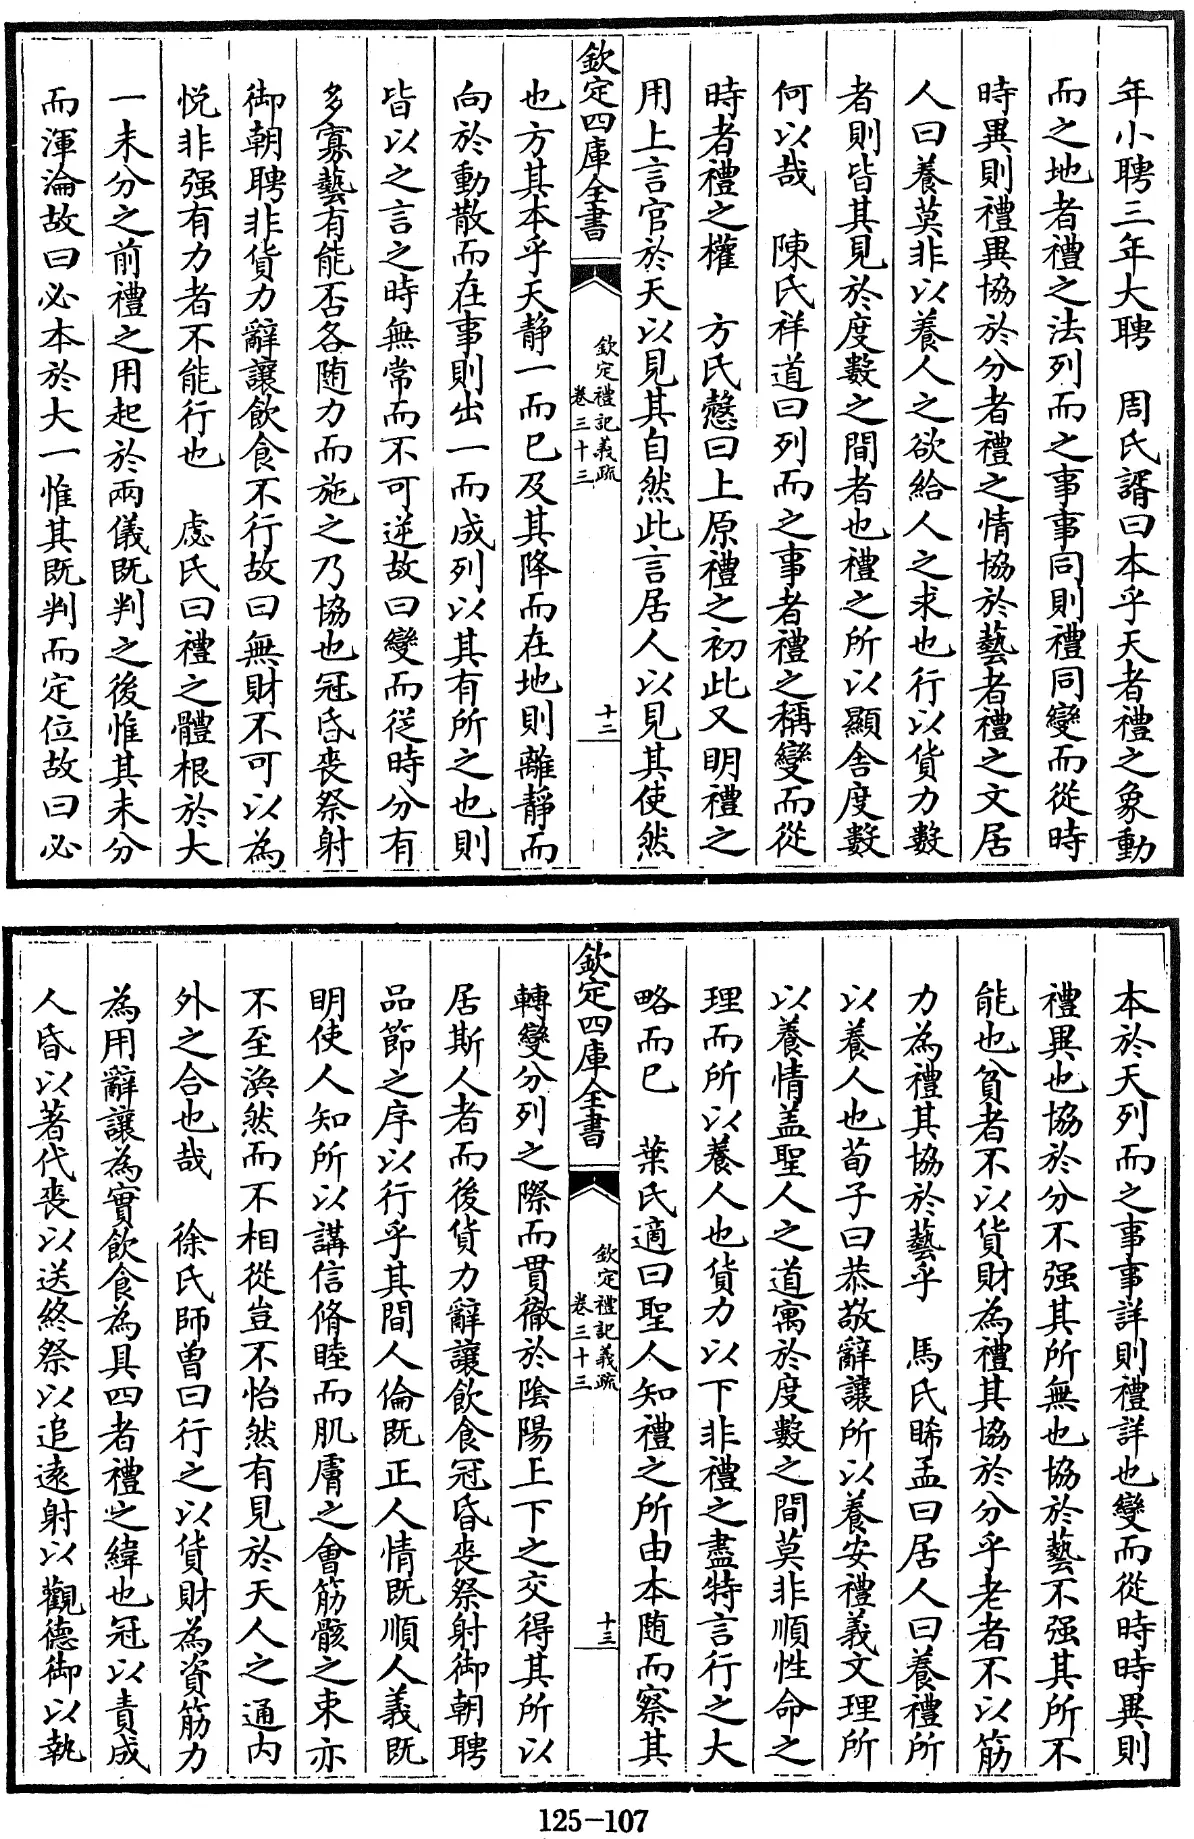 年小聘三年大聘　周氏諝曰本乎天者禮之象動
而之地者禮之法列而之事事同則禮同變而從時
時異則禮異協於分者禮之情協於藝者禮之文居
人曰養莫非以養人之欲給人之求也行以貨力數
者則皆其見於度數之間者也禮之所以顯舍度數
何以哉　陳氏祥道曰列而之事者禮之稱變而從
時者禮之權　方氏慤曰上原禮之初此又明禮之
用上言官於天以見其自然此言居人以見其使然
欽定四庫全書
欽定禮記義疏
卷三十三
十二
也方其本乎天靜一而已及其降而在地則離靜而
向於動散而在事則出一而成列以其有所之也則
皆以之言之時無常而不可逆故曰變而從時分有
多寡藝有能否各随力而施之乃協也冠昏喪祭射
御朝聘非貨力辭讓飲食不行故曰無財不可以為
悅非强有力者不能行也　虙氏曰禮之體根於大
一未分之前禮之用起於兩儀既判之後惟其未分
而渾淪故曰必本於大一惟其既判而定位故曰必
本於天列而之事事詳則禮詳也變而從時時異則
禮異也協於分不强其所無也協於藝不强其所不
能也貧者不以貨財為禮其協於分乎老者不以筋
力為禮其協於藝乎　馬氏睎孟曰居人曰養禮所
以養人也荀子曰恭敬辭讓所以養安禮義文理所
以養情盖聖人之道寓於度數之間莫非順性命之
理而所以養人也貨力以下非禮之盡特言行之大
略而已　葉氏適曰聖人知禮之所由本随而察其
欽定四庫全書
欽定禮記義疏
卷三十三
十三
轉變分列之際而貫徹於陰陽上下之交得其所以
居斯人者而後貨力辭讓飲食冠昏喪祭射御朝聘
品節之序以行乎其間人倫既正人情既順人義既
明使人知所以講信脩睦而肌膚之會筋骸之束亦
不至渙然而不相從豈不怡然有見於天人之通内
外之合也哉　徐氏師曾曰行之以貨財為資筋力
為用辭讓為實飲食為具四者禮之緯也冠以責成
人昏以著代喪以送終祭以追逺射以觀德御以執
125-107